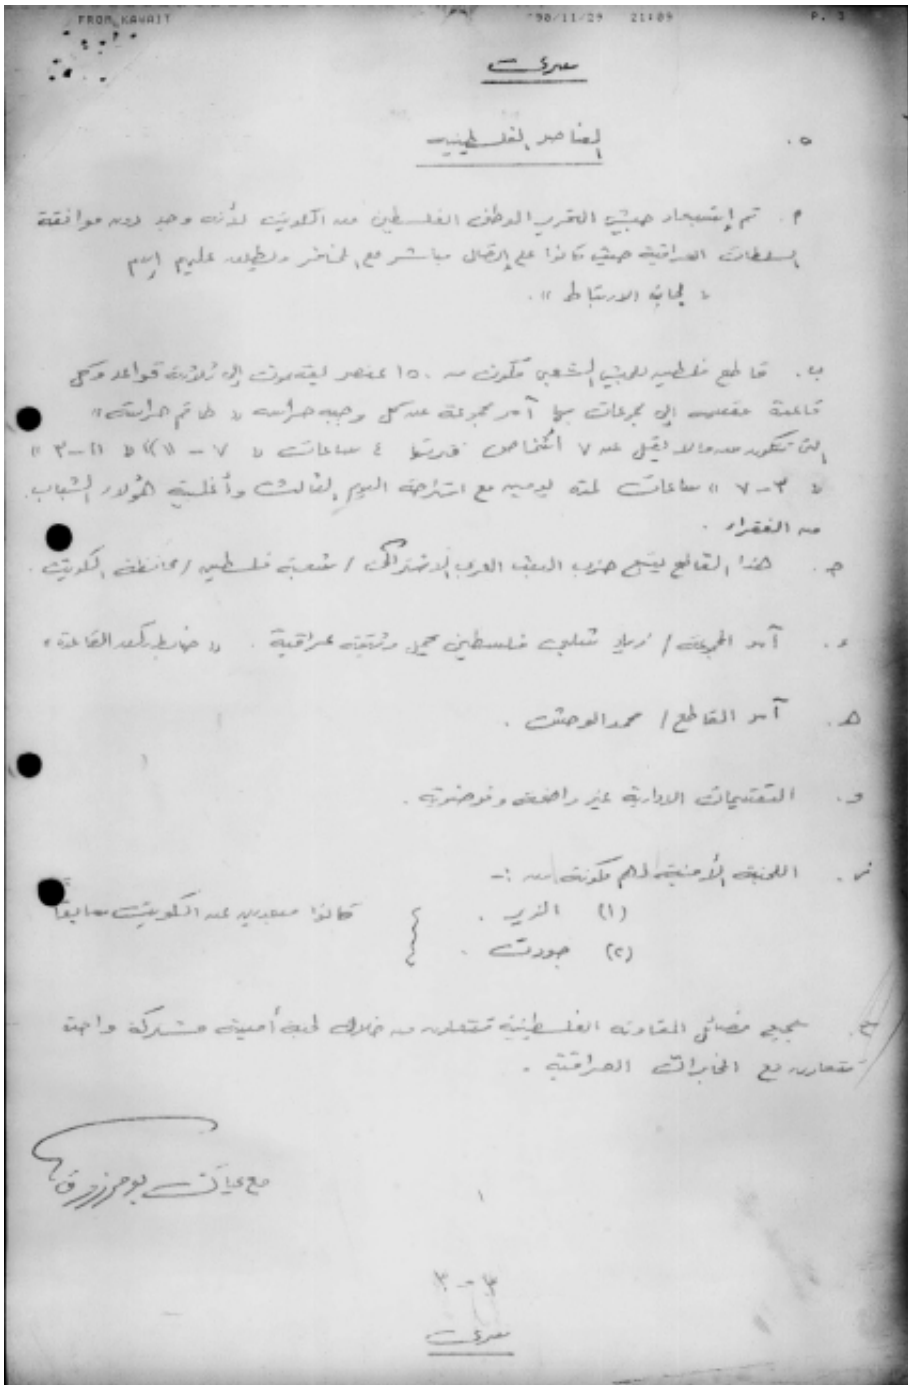 FROM KAWAIT 90/11/29 21:09 P. 3
سري
٥. العناصر الفلسطينية
م. تم إستبعاد جيش التحرير الوطني الفلسطيني من الكويت لأنه وجد دون موافقة
السلطات العراقية حيث كانوا على إتصال مباشر مع المخافر ويطلق عليهم إسم
" لجان الارتباط ".
ب. قاطع فلسطين للجيش الشعبي مكون من ١٥٠ عنصر يقسمون إلى ثلاثة قواعد وكل
قاعدة مقسمه إلى مجموعات بها آمر مجموعة عن كل وجبه حراسه " طاقم حراسه "
التي تتكون من ما لا يقل عن ٧ أشخاص فترتها ٤ ساعات " ٧ - ١١ " " ١١ - ٣ "
" ٣ - ٧ " ساعات لمدة يومين مع استراحة اليوم الثالث وأغلبية هؤلاء الشباب
من الفقراء .
جـ. هذا القاطع يتبع حزب البعث العربي الاشتراكي / شعبة فلسطين / محافظة الكويت .
د. آمر المجموعة / زياد شلبي فلسطيني يحمل وثيقة عراقية . " ضابط ركن القاعدة "
هـ. آمر القاطع / محمد الوحش .
و. التقسيمات الادارية غير واضحة وفوضوية .
ز. اللجنة الأمنية لهم مكونة من :-
(١) الزير .
(٢) جودت .
كانوا مبعدين عن الكويت سابقاً
ح. جميع فصائل المقاومة الفلسطينية تتعاون من خلال لجنة أمنية مشتركة واحدة
تتعاون مع المخابرات العراقية .
مع تحيات بو مرزوق
١
٣ - ٣
سري